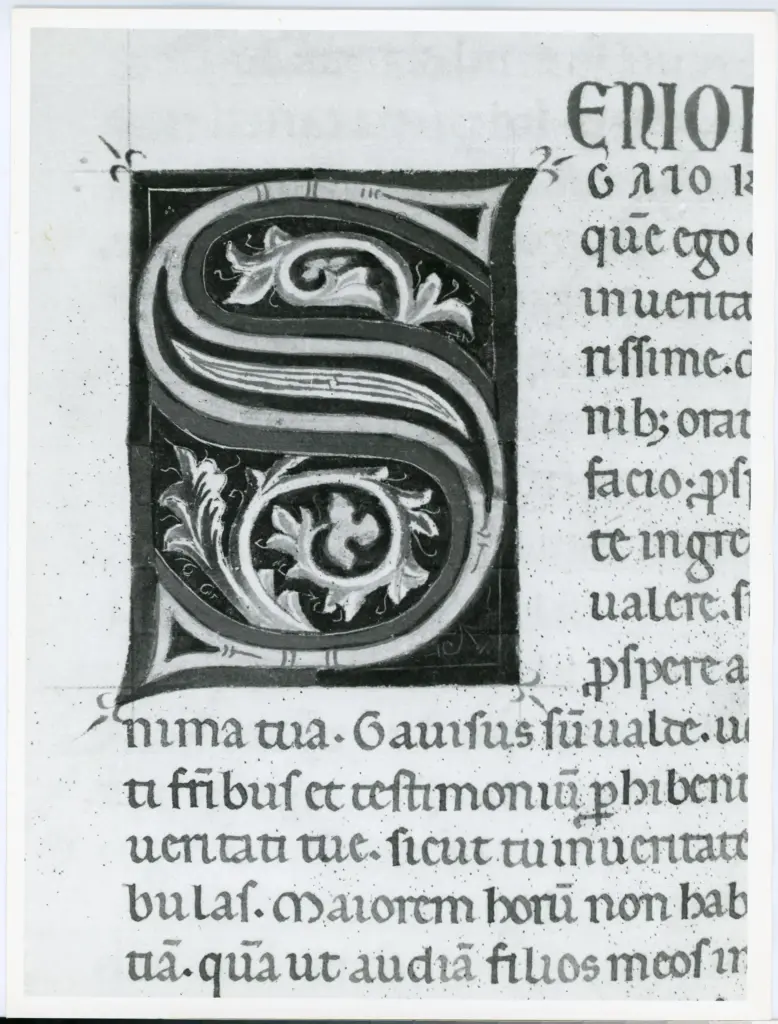 S ENIOR
GAIO
quē ego
in uerita
riſſime. c
nib; orat
facio. pſ
te ingre
ualere. ſ
pſpere a
nima tua. Gauiſus ſū ualde. ue
ti frīb uſ et teſtimoniū phibent
ueritati tue. ſicut tu in ueritate
bulaſ. Maiorem horū non hab
tiā. quā ut audiā filios meoſ in